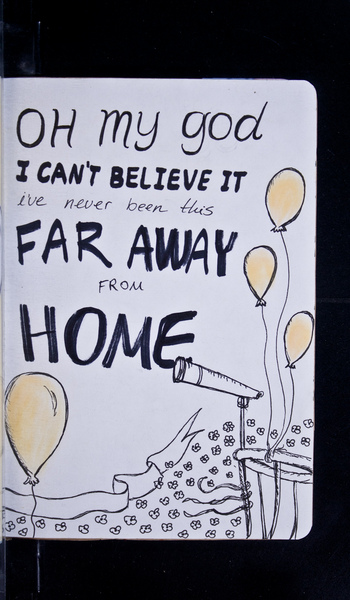 OH my god
I CAN'T BELIEVE IT
i've never been this
FAR AWAY
FROM
HOME